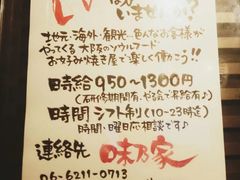 いませんか!?
地元・海外・観光…色んなお客様が
やってくる大阪のソウルフード
お好み焼き屋で楽しく働こう!!
時給950~1300円
(石研修期間有、やる気で昇給有♪)
時間 シフト制(10-23時迄)
時間・曜日応相談です♪
連絡先 味乃家
06-6211-0713